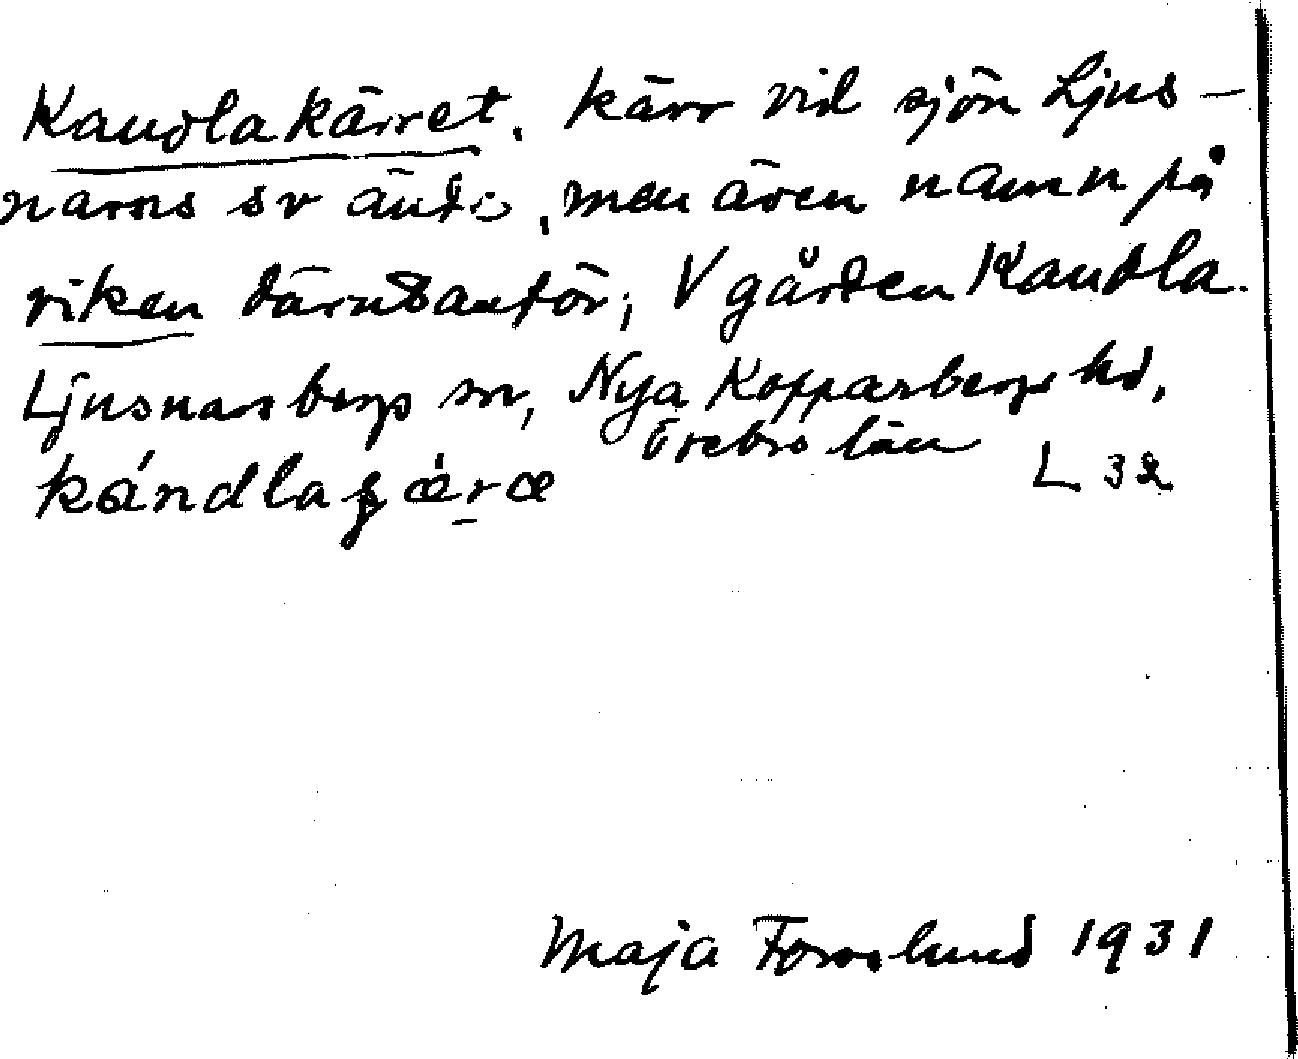 Kandlakärret. kärr vid sjön Ljus-
narns sv ände, men även namn på
viken därutanför, V gården Kandla.
Ljusnarsbergs sn, Nya Kopparbergs hd,
Örebro län L 32
kándlaʒæ̀ræ
Maja Forsslund 1931